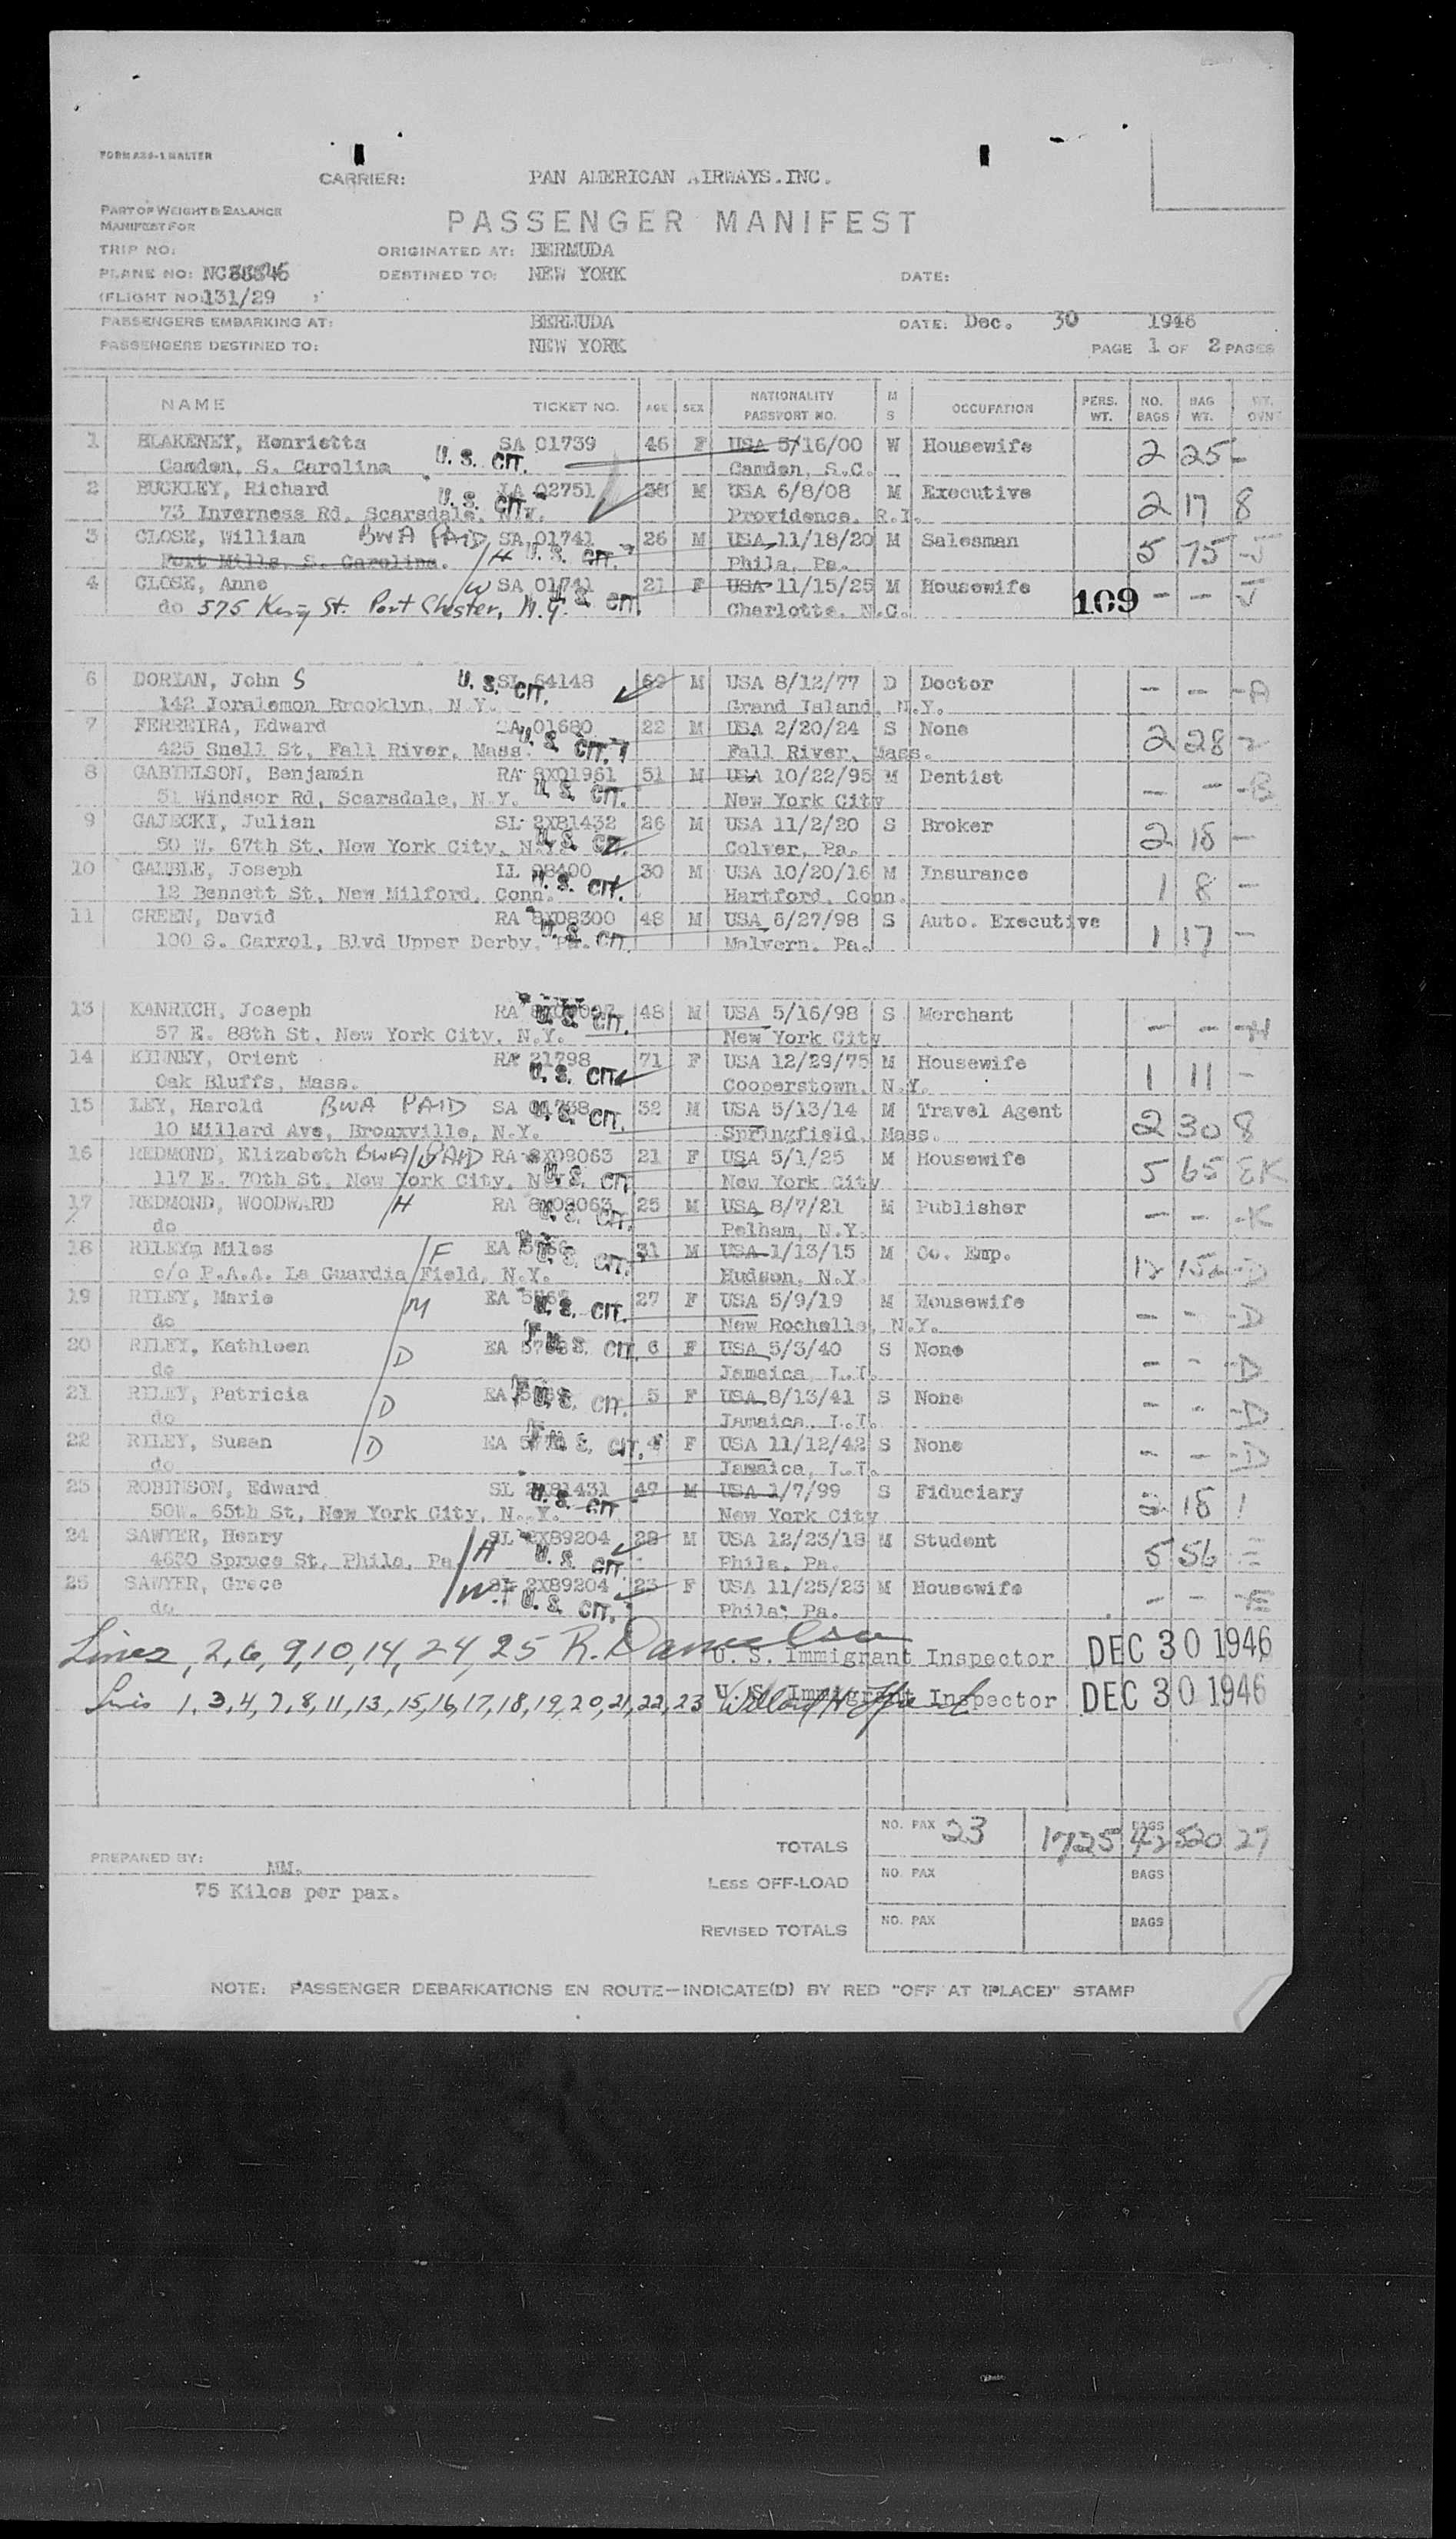 FORM A20-1 MASTER
CARRIER: PAN AMERICAN AIRWAYS.INC.
PART OF WEIGHT & BALANCE
MANIFEST FOR
PASSENGER MANIFEST
TRIP NO: ORIGINATED AT: BERMUDA
PLANE NO: DESTINED TO: NEW YORK DATE:
(FLIGHT NO. 131/29 )
PASSENGERS EMBARKING AT: BERMUDA DATE: Dec. 30 1946
PASSENGERS DESTINED TO: NEW YORK PAGE 1 OF 2 PAGES
NAME TICKET NO. AGE SEX NATIONALITY PASSPORT NO. M S OCCUPATION PERS. WT. NO. BAGS BAG WT. WT. OVN
1 BLAKENEY, Henrietta SA 01739 46 F USA 5/16/00 W Housewife 2 25 -
Camden, S. Carolina U. S. CIT. Camden, S.C.
2 BUCKLEY, Richard 02751 38 M USA 6/8/08 M Executive 2 17 8
73 Inverness Rd, Scarsdale, N.Y. U. S. CIT. Providence, R.I.
3 CLOSE, William BWA PAID SA 01741 26 M USA 11/18/20 M Salesman 5 75 -5
Fort Mills, S. Carolina. /H U. S. CIT. Phila, Pa.
4 CLOSE, Anne W SA 01741 21 F USA 11/15/25 M Housewife 109 - -
do 575 King St. Port Chester, N.Y. U. S. CIT. Charlotte, N.C.
6 DORIAN, John S SL 64148 69 M USA 8/12/77 D Doctor - - -A
142 Joralemon Brooklyn, N.Y. U. S. CIT. Grand Island, N.Y.
7 FERREIRA, Edward SA 01680 22 M USA 2/20/24 S None 2 28 2
425 Snell St, Fall River, Mass. U. S. CIT. Fall River, Mass.
8 GABIELSON, Benjamin RA 8X01961 51 M USA 10/22/95 M Dentist - - -B
51 Windsor Rd, Scarsdale, N.Y. U. S. CIT. New York City
9 GAJECKI, Julian SL 2X81432 26 M USA 11/2/20 S Broker 2 18 -
50 W. 67th St, New York City, N.Y. U. S. CIT. Colver, Pa.
10 GAMBLE, Joseph 08400 30 M USA 10/20/16 M Insurance 1 8 -
12 Bennett St, New Milford, Conn. U. S. CIT. Hartford, Conn.
11 GREEN, David RA 8X08300 48 M USA 6/27/98 S Auto. Executive 1 17 -
100 S. Carrol, Blvd Upper Derby, Pa. U. S. CIT. Malvern, Pa.
13 KANRICH, Joseph RA 48 M USA 5/16/98 S Merchant - - -H
57 E. 88th St, New York City, N.Y. U. S. CIT. New York City
14 KINNEY, Orient RA 21798 71 F USA 12/29/75 M Housewife 1 11 -
Oak Bluffs, Mass. U. S. CIT. Cooperstown, N.Y.
15 LEY, Harold BWA PAID SA 01738 32 M USA 5/13/14 M Travel Agent 2 30 8
10 Millard Ave, Bronxville, N.Y. U. S. CIT. Springfield, Mass.
16 REDMOND, Elizabeth BWA PAID RA 8X09063 21 F USA 5/1/25 M Housewife 5 65 EK
117 E. 70th St, New York City, N.Y. U. S. CIT. New York City
17 REDMOND, WOODWARD /H RA 8X09063 25 M USA 8/7/21 M Publisher - - -K
do U. S. CIT. Pelham, N.Y.
18 RILEY, Miles /F EA 31 M USA 1/13/15 M Co. Emp. 12 152 -D
c/o P.A.A. La Guardia Field, N.Y. U. S. CIT. Hudson, N.Y.
19 RILEY, Marie /M EA 27 F USA 5/9/19 M Housewife - - -D
do U. S. CIT. New Rochelle, N.Y.
20 RILEY, Kathleen /D EA 6 F USA 5/3/40 S None - - -D
do U. S. CIT. Jamaica, L.I.
21 RILEY, Patricia /D EA 5 F USA 8/13/41 S None - - -D
do U. S. CIT. Jamaica, L.I.
22 RILEY, Susan /D EA 4 F USA 11/12/42 S None - - -D
do U. S. CIT. Jamaica, L.I.
23 ROBINSON, Edward SL 2X81431 47 M USA 1/7/99 S Fiduciary 2 18 1
50W. 65th St, New York City, N. Y. U. S. CIT. New York City
24 SAWYER, Henry /H SL 2X89204 28 M USA 12/23/18 M Student 5 56 E
4630 Spruce St, Phila, Pa. U. S. CIT. Phila, Pa.
25 SAWYER, Grace /W SL 2X89204 23 F USA 11/25/23 M Housewife - - -E
do U. S. CIT. Phila; Pa.
Lines, 2,6,9,10,14,24,25 R. Danielson U. S. Immigrant Inspector DEC 30 1946
Lines 1,3,4,7,8,11,13,15,16,17,18,19,20,21,22,23 U. S. Immigrant Inspector DEC 30 1946
TOTALS NO. PAX 23 1725 BAGS 42 520 27
PREPARED BY: MM. LESS OFF-LOAD NO. PAX BAGS
75 Kilos per pax.
REVISED TOTALS NO. PAX BAGS
NOTE: PASSENGER DEBARKATIONS EN ROUTE—INDICATE(D) BY RED "OFF AT (PLACE)" STAMP